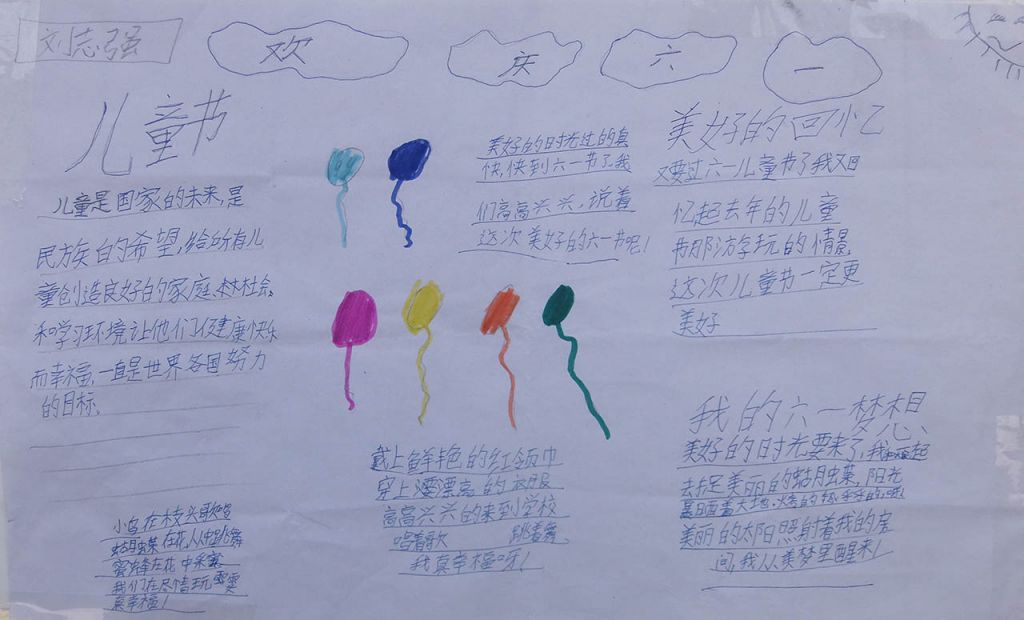 刘志强
欢
庆
六
一
儿童节
儿童是国家的未来,是
民族自的希望,给所有儿
童创造良好的家庭、社会、
和学习环境让他们健康快乐
而幸福,一直是世界各国努力
的目标、
小鸟在枝头歌唱
在花从中跳舞
蜜蜂在花中采蜜
我们在尽情玩
真幸福!
美好的时光过的真
快,快到六一节了,我
们高高兴兴,说着
这次美好的六一节呢!
戴上鲜艳的红领巾
穿上漂亮的衣服
高高兴兴的来到学校
唱着歌 跳着舞
我真幸福呀!
美好的回忆
又要过六一儿童节了我又回
忆起去年的儿童
节那游玩的情景
这次儿童节一定更
美好
我的六一梦想
美好的时光要来了,我
去捉美丽的 阳光
大地,
美丽的太阳照射着我的房
间,我从美梦里醒来!